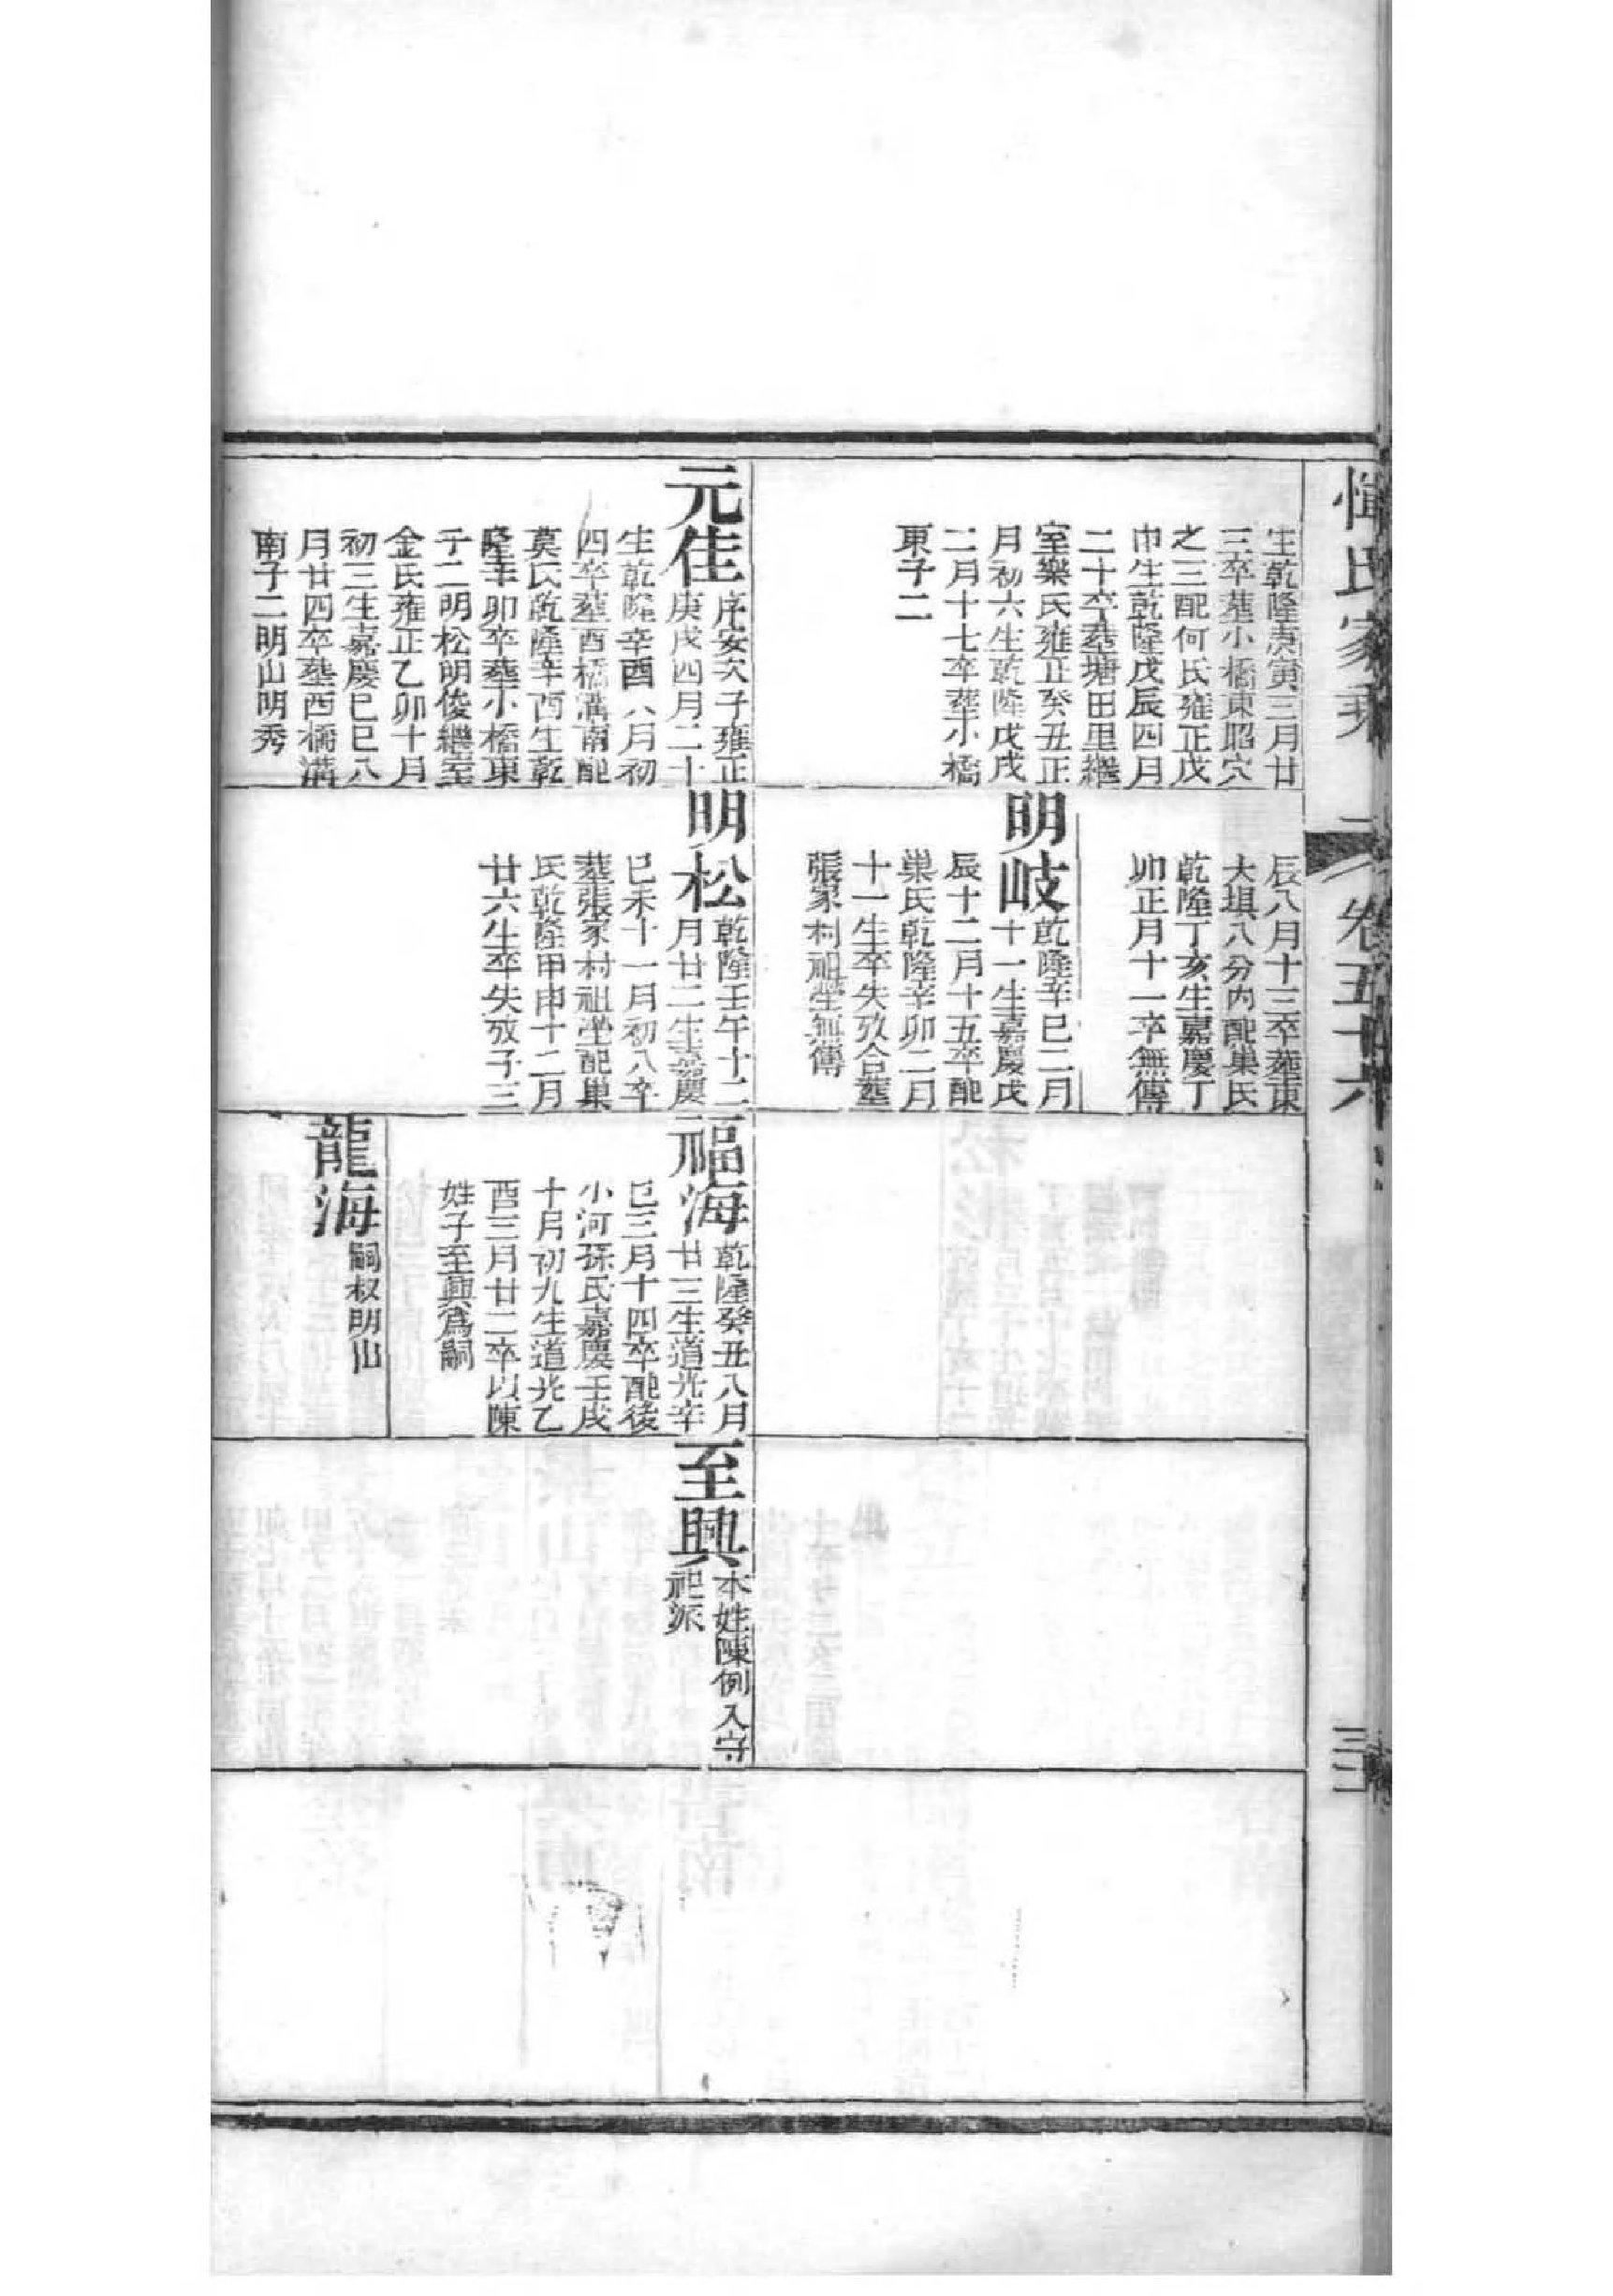 惲氏家乘
卷五十六
三二
生乾隆庚寅三月廿
三卒葬小橋東昭穴
之三配何氏雍正戊
巾生乾隆戊辰四月
二十卒葬塘田里繼
室樂氏雍正癸丑正
月初六生乾隆戊戌
二月十七卒葬小橋
東子二
元佳
序安次子雍正
庚戌四月二十
生乾隆辛酉八月初
四卒葬西橋溝南配
莫氏乾隆辛酉生乾
隆辛卯卒葬小橋東
子二明松明俊繼室
金氏雍正乙卯十月
初三生嘉慶己巳八
月廿四卒葬西橋溝
南子二明山明秀
辰八月十三卒葬東
大塤八分內配巢氏
乾隆丁亥生嘉慶丁
卯正月十一卒無傳
明岐
乾隆辛巳二月
十一生嘉慶戊
辰十二月十五卒配
巢氏乾隆辛卯二月
十一生卒失攷合葬
張家村祖塋無傳
明松
乾隆壬午十二
月廿二生嘉慶
己未十一月初八卒
葬張家村祖塋配巢
氏乾隆甲申十二月
廿六生卒失攷子三
福海
乾隆癸丑八月
廿三生道光辛
巳三月十四卒配後
小河孫氏嘉慶壬戌
十月初九生道光乙
酉三月廿二卒以陳
姓子至興爲嗣
龍海
嗣叔明山
至興
本姓陳例入守
祀派